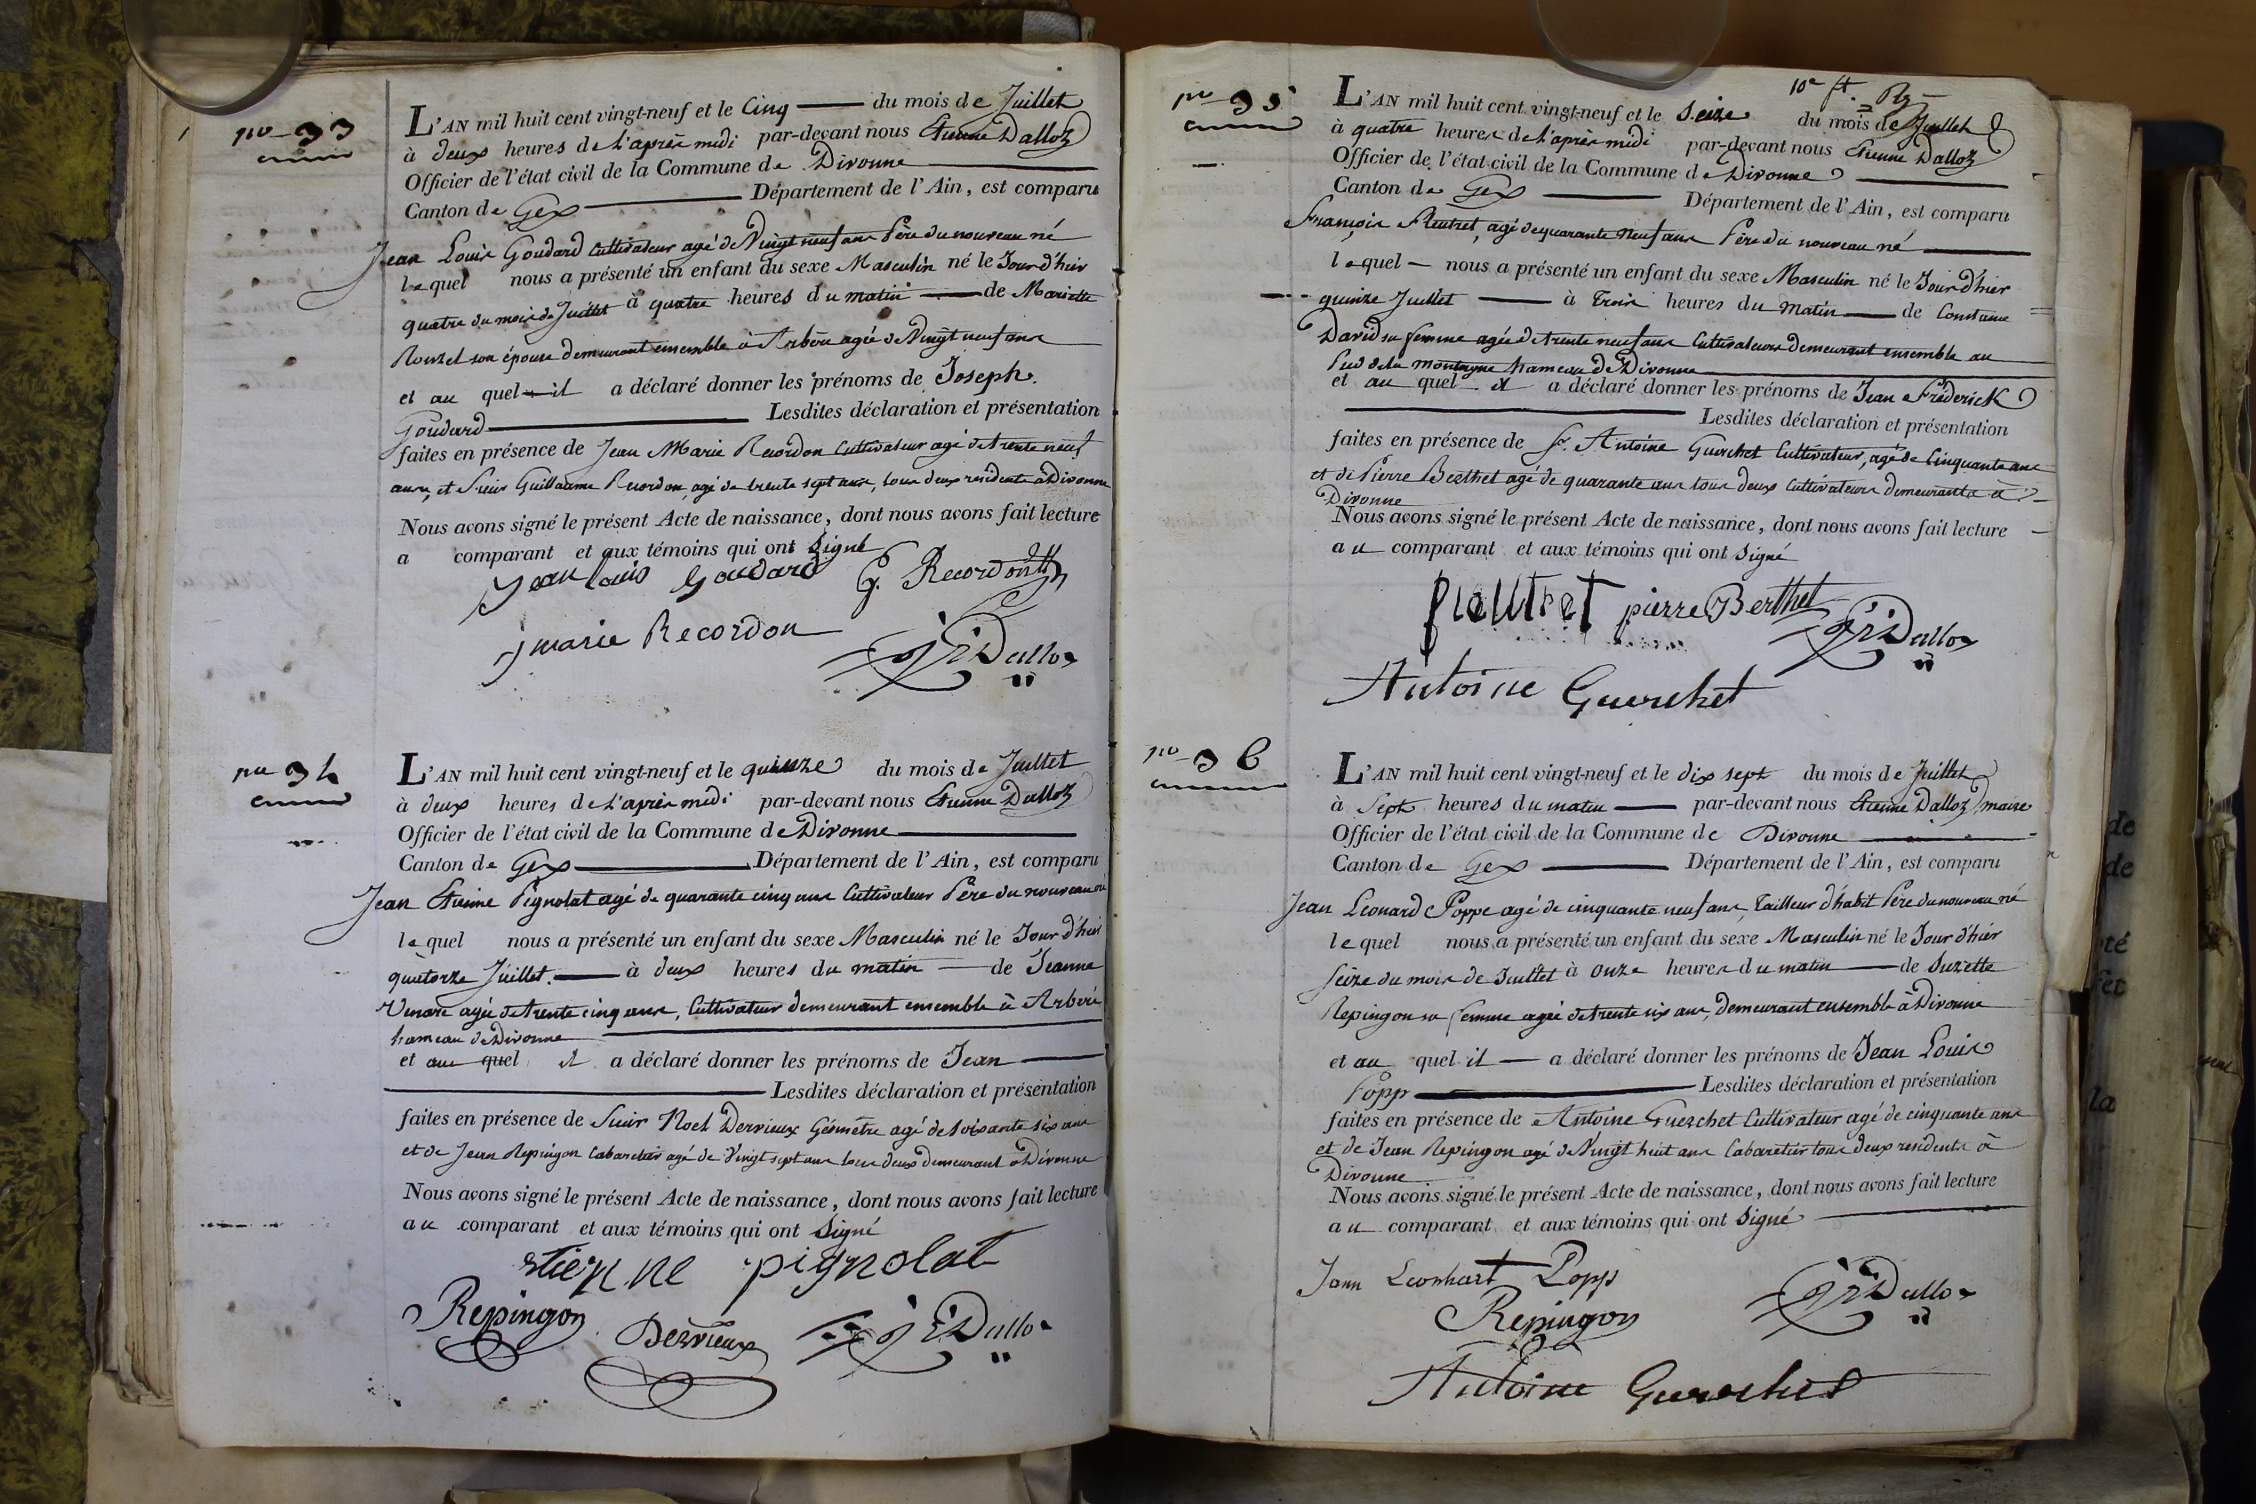 no 33
L'AN mil huit cent vingt-neuf et le Cinq du mois de Juillet
à deux heures de L'après midi par-devant nous Etienne Dalloz
Officier de l'état civil de la Commune de Divonne
Canton de Gex Département de l'Ain, est comparu
Jean Louis Goudard Cultivateur agé de Vingt neuf ans Père du nouveau né
lequel nous a présenté un enfant du sexe Masculin né le Jour d'hier
quatre du mois de Juillet à quatre heures du matin de Mariette
Rouzel son épouse demeurant ensemble à Arbère agée de Vingt neuf ans
et au quel il a déclaré donner les prénoms de Joseph.
Goudard Lesdites déclaration et présentation
faites en présence de Jean Marie Recordon Cultivateur agé de trente neuf
ans, et Sieur Guillaume Recordon, agé de trente sept ans, tous deux residents à Divonne
Nous avons signé le présent Acte de naissance, dont nous avons fait lecture
a comparant et aux témoins qui ont Signé
Jean Louis Goudard G. Recordon
J marie Recordon Dalloz
no 34
L'AN mil huit cent vingt-neuf et le quinze du mois de Juillet
à deux heures de L'après midi par-devant nous Etienne Dalloz
Officier de l'état civil de la Commune de Divonne
Canton de Gex Département de l'Ain, est comparu
Jean Etienne Pignolat agé de quarante cinq ans Cultivateur Père du nouveau né
lequel nous a présenté un enfant du sexe Masculin né le Jour d'hier
quatorze Juillet. à deux heures du matin de Jeanne
agée de trente cinq ans, Cultivateur demeurant ensemble à Arbère
hameau de Divonne
et au quel il a déclaré donner les prénoms de Jean
Lesdites déclaration et présentation
faites en présence de Sieur Noel Dervieux Géomètre agé de soixante six ans
et de Jean Repingon Cabaretier agé de Vingt sept ans tous deux demeurant à Divonne
Nous avons signé le présent Acte de naissance, dont nous avons fait lecture
au comparant et aux témoins qui ont Signé
etienne pignolat
Repingon Dervieux Dalloz
10e ft.
no 35
L'AN mil huit cent vingt-neuf et le Seize du mois de Juillet
à quatre heures de L'après midi par-devant nous Etienne Dalloz
Officier de l'état civil de la Commune de Divonne
Canton de Gex Département de l'Ain, est comparu
François Fleutret, agé de quarante neuf ans Père du nouveau né
lequel nous a présenté un enfant du sexe Masculin né le Jour d'hier
quinze Juillet à Trois heures du matin de Constance
David sa femme agée de trente neuf ans Cultivateurs demeurant ensemble au
Pied de la montagne hameau de Divonne
et au quel il a déclaré donner les prénoms de Jean Fréderick
Lesdites déclaration et présentation
faites en présence de Sr. Antoine Guerchet Cultivateur, agé de Cinquante ans
et de Pierre Berthet agé de quarante ans tous deux Cultivateurs demeurants à
Divonne
Nous avons signé le présent Acte de naissance, dont nous avons fait lecture
au comparant et aux témoins qui ont Signé
fleutret pierre Berthet Dalloz
Antoine Guerchet
no 36
L'AN mil huit cent vingt-neuf et le dix sept du mois de Juillet
à Sept heures du matin par-devant nous Etienne Dalloz maire
Officier de l'état civil de la Commune de Divonne
Canton de Gex Département de l'Ain, est comparu
Jean Leonard Poppe agé de cinquante neuf ans, Tailleur d'habit Père du nouveau né
lequel nous a présenté un enfant du sexe Masculin né le Jour d'hier
Seize du mois de Juillet à onze heures du matin de Suzette
Repingon sa femme agée de trente six ans, demeurant ensemble à Divonne
et au quel il a déclaré donner les prénoms de Jean Louis
Popp Lesdites déclaration et présentation
faites en présence de Antoine Guerchet Cultivateur agé de cinquante ans
et de Jean Repingon agé de Vingt huit ans Cabaretier tous deux residents à
Divonne
Nous avons signé le présent Acte de naissance, dont nous avons fait lecture
au comparant et aux témoins qui ont Signé
Jann Leonhart Popp
Repingon Dalloz
Antoine Guerchet